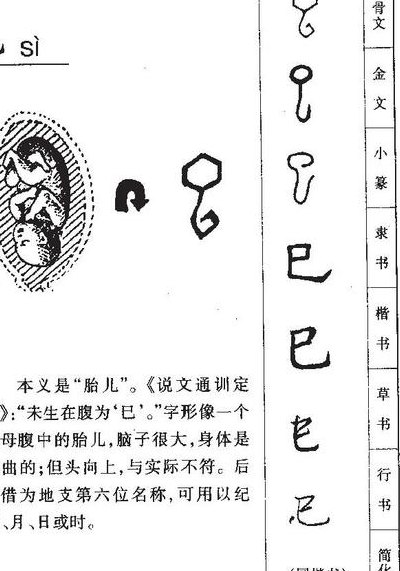 sì
本义是“胎儿”。《说文通训定
》:“未生在腹为‘巳’。”字形像一个
母腹中的胎儿,脑子很大,身体是
曲的;但头向上,与实际不符。后
借为地支第六位名称,可用以纪
、月、日或时。
巳
巳
巳
巳
骨文
金文
小篆
隶书
楷书
草书
行书
简化